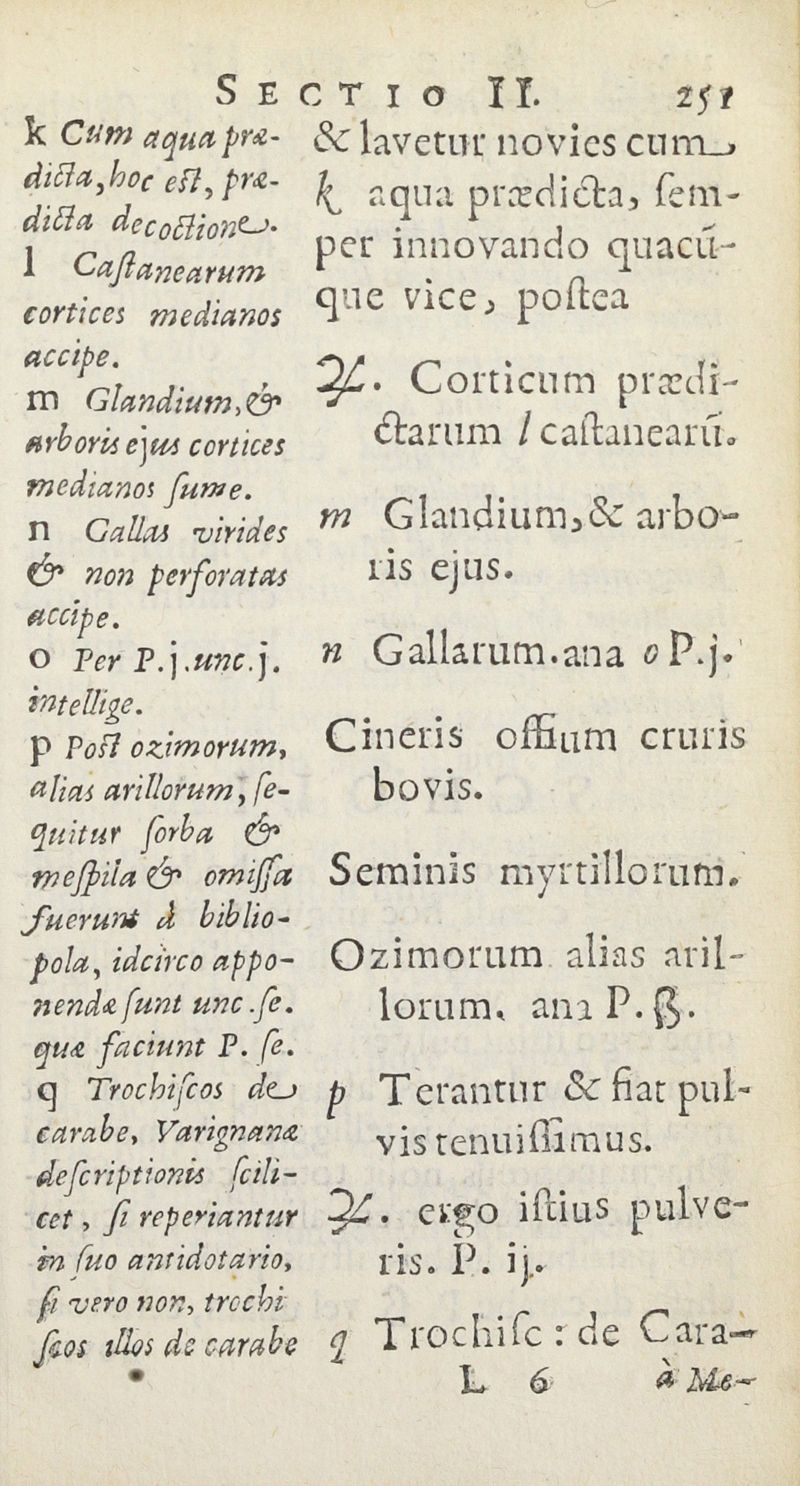 SECTIO II. 251
k Cum aqua præ-
dicta, hoc est, præ-
dicta decoctione.
l Castanearum
cortices medianos
accipe.
m Glandium, &
arboris ejus cortices
medianos sume.
n Gallas virides
& non perforatas
accipe.
o Per P.j.unc.j.
intellige.
p Post ozimorum,
alias arillorum, se-
quitur sorba &
mespila & omissa
fuerunt à biblio-
pola, idcirco appo-
nendæ sunt unc.se.
quæ faciunt P. se.
q Trochiscos de
carabe, Varignanæ
descriptionis scili-
cet, si reperiantur
in suo antidotario,
si vero non, trochi
scos illos de carabe
& lavetur novies cum
k aqua prædicta, sem-
per innovando quacū-
que vice, postea
℞. Corticum prædi-
ctarum l castanearū.
m Glandium, & arbo-
ris ejus.
n Gallarum. ana o P.j.
Cineris ossium cruris
bovis.
Seminis myrtillorum.
Ozimorum alias aril-
lorum, ana P. ß.
p Terantur & fiat pul-
vis tenuissimus.
℞. ergo istius pulve-
ris. P. ij.
q Trochisc : de Cara-
L 6 à Me-